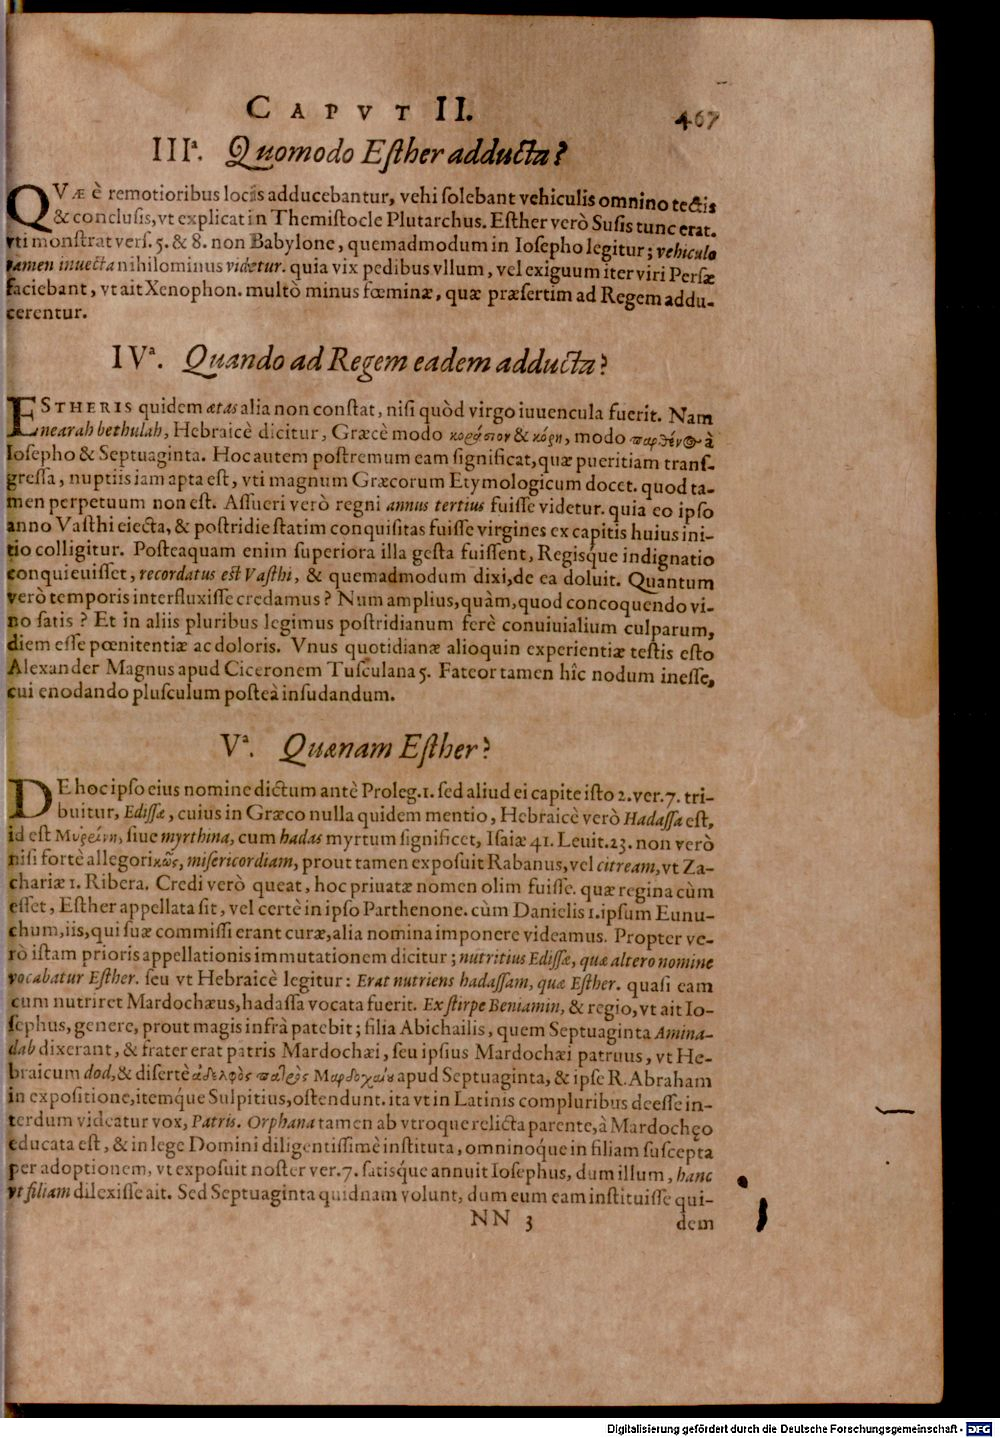 CAPVT II. 467
IIIª. Quomodo Eſther adducta?
QVÆ è remotioribus locis adducebantur, vehi ſolebant vehiculis omnino tectis
& concluſis, vt explicat in Themiſtocle Plutarchus. Eſther verò Suſis tunc erat.
vti monſtrat verſ. 5. & 8. non Babylone, quemadmodum in Ioſepho legitur; vehiculo
tamen inuecta nihilominus videtur. quia vix pedibus vllum, vel exiguum iter viri Perſæ
faciebant, vt ait Xenophon. multò minus fœminæ, quæ præſertim ad Regem addu-
cerentur.
IVª. Quando ad Regem eadem adducta?
ESTHERIS quidem ætas alia non conſtat, niſi quòd virgo iuuencula fuerit. Nam
nearah bethulah, Hebraicè dicitur, Græcè modo κοράσιον & κόρη, modo παρθένος à
Ioſepho & Septuaginta. Hoc autem poſtremum eam ſignificat, quæ pueritiam tranſ-
greſſa, nuptiis iam apta eſt, vti magnum Græcorum Etymologicum docet. quod ta-
men perpetuum non eſt. Aſſueri verò regni annus tertius fuiſſe videtur. quia eo ipſo
anno Vaſthi eiecta, & poſtridie ſtatim conquiſitas fuiſſe virgines ex capitis huius ini-
tio colligitur. Poſteaquam enim ſuperiora illa geſta fuiſſent, Regisq́ue indignatio
conquieuiſſet, recordatus eſt Vaſthi, & quemadmodum dixi, de ea doluit. Quantum
verò temporis interfluxiſſe credamus? Num amplius, quàm, quod concoquendo vi-
no ſatis? Et in aliis pluribus legimus poſtridianum ferè conuiuialium culparum,
diem eſſe pœnitentiæ ac doloris. Vnus quotidianæ alioquin experientiæ teſtis eſto
Alexander Magnus apud Ciceronem Tuſculana 5. Fateor tamen hîc nodum ineſſe,
cui enodando pluſculum poſteà inſudandum.
Vª. Quænam Eſther?
DE hoc ipſo eius nomine dictum antè Proleg. 1. ſed aliud ei capite iſto 2. ver. 7. tri-
buitur, Ediſſæ, cuius in Græco nulla quidem mentio, Hebraicè verò Hadaſſa eſt,
id eſt Μυρσίνη, ſiue myrthina, cum hadas myrtum ſignificet, Iſaiæ 41. Leuit. 23. non verò
niſi fortè allegoriκῶς, miſericordiam, prout tamen expoſuit Rabanus, vel citream, vt Za-
chariæ 1. Ribera. Credi verò queat, hoc priuatæ nomen olim fuiſſe. quæ regina cùm
eſſet, Eſther appellata ſit, vel certè in ipſo Parthenone. cùm Danielis 1. ipſum Eunu-
chum, iis, qui ſuæ commiſſi erant curæ, alia nomina imponere videamus. Propter ve-
rò iſtam prioris appellationis immutationem dicitur; nutritius Ediſſæ, quæ altero nomine
vocabatur Eſther. ſeu vt Hebraicè legitur: Erat nutriens hadaſſam, quæ Eſther. quaſi eam
cum nutriret Mardochæus, hadaſſa vocata fuerit. Ex ſtirpe Beniamin, & regio, vt ait Io-
ſephus, genere, prout magis infrà patebit; filia Abichailis, quem Septuaginta Amina-
dab dixerant, & frater erat patris Mardochæi, ſeu ipſius Mardochæi patruus, vt He-
braicum dod, & diſertè ἀδελφὸς πατρὸς Μαρδοχαίου apud Septuaginta, & ipſe R. Abraham
in expoſitione, itemq́ue Sulpitius, oſtendunt. ita vt in Latinis compluribus deeſſe in-
terdum videatur vox, Patris. Orphana tamen ab vtroque relicta parente, à Mardochęo
educata eſt, & in lege Domini diligentiſſimè inſtituta, omninoq́ue in filiam ſuſcepta
per adoptionem, vt expoſuit noſter ver. 7. ſatisq́ue annuit Ioſephus, dum illum, hanc
vt filiam dilexiſſe ait. Sed Septuaginta quidnam volunt, dum eum eam inſtituiſſe qui-
NN 3 dem
Digitalisierung gefördert durch die Deutsche Forschungsgemeinschaft - DFG